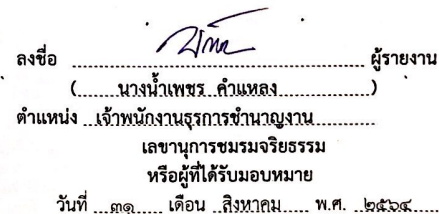 ลงชื่อ ผู้รายงาน
(นางน้ำเพชร คำแหลง)
ตำแหน่ง เจ้าพนักงานธุรการชำนาญงาน
เลขานุการชมรมจริยธรรม
หรือผู้ที่ได้รับมอบหมาย
วันที่ ๓๑ เดือน สิงหาคม พ.ศ. ๒๕๖๔